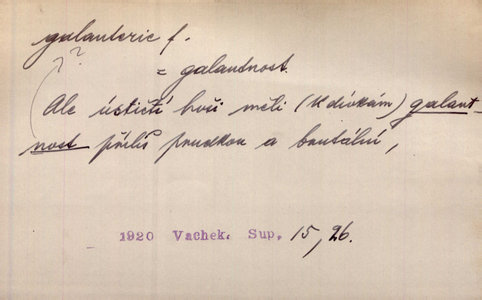 galanterie f.
??
= galantnost.
Ale ústičtí hoši měli (k dívkám) galant-
nost příliš prudkou a brutální,
1920 Vachek. Sup, 15, 26.